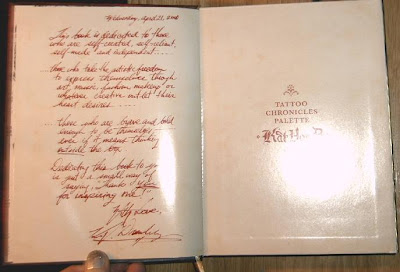 Wednesday, April 21, 2010
This book is dedicated to those
who are self-created, self-reliant,
self-made and independent.....
those who take the artistic freedom
to express themselves through
art, music, fashion, makeup or
whatever creative outlet their
heart desires.....
...those who are brave and bold
enough to be themselves,
even if it means thinking
outside the box
Dedicating this book to you
is just a small way of
saying, Thank you
for inspiring me!
With Love,
TATTOO
CHRONICLES
PALETTE
Kat Von D